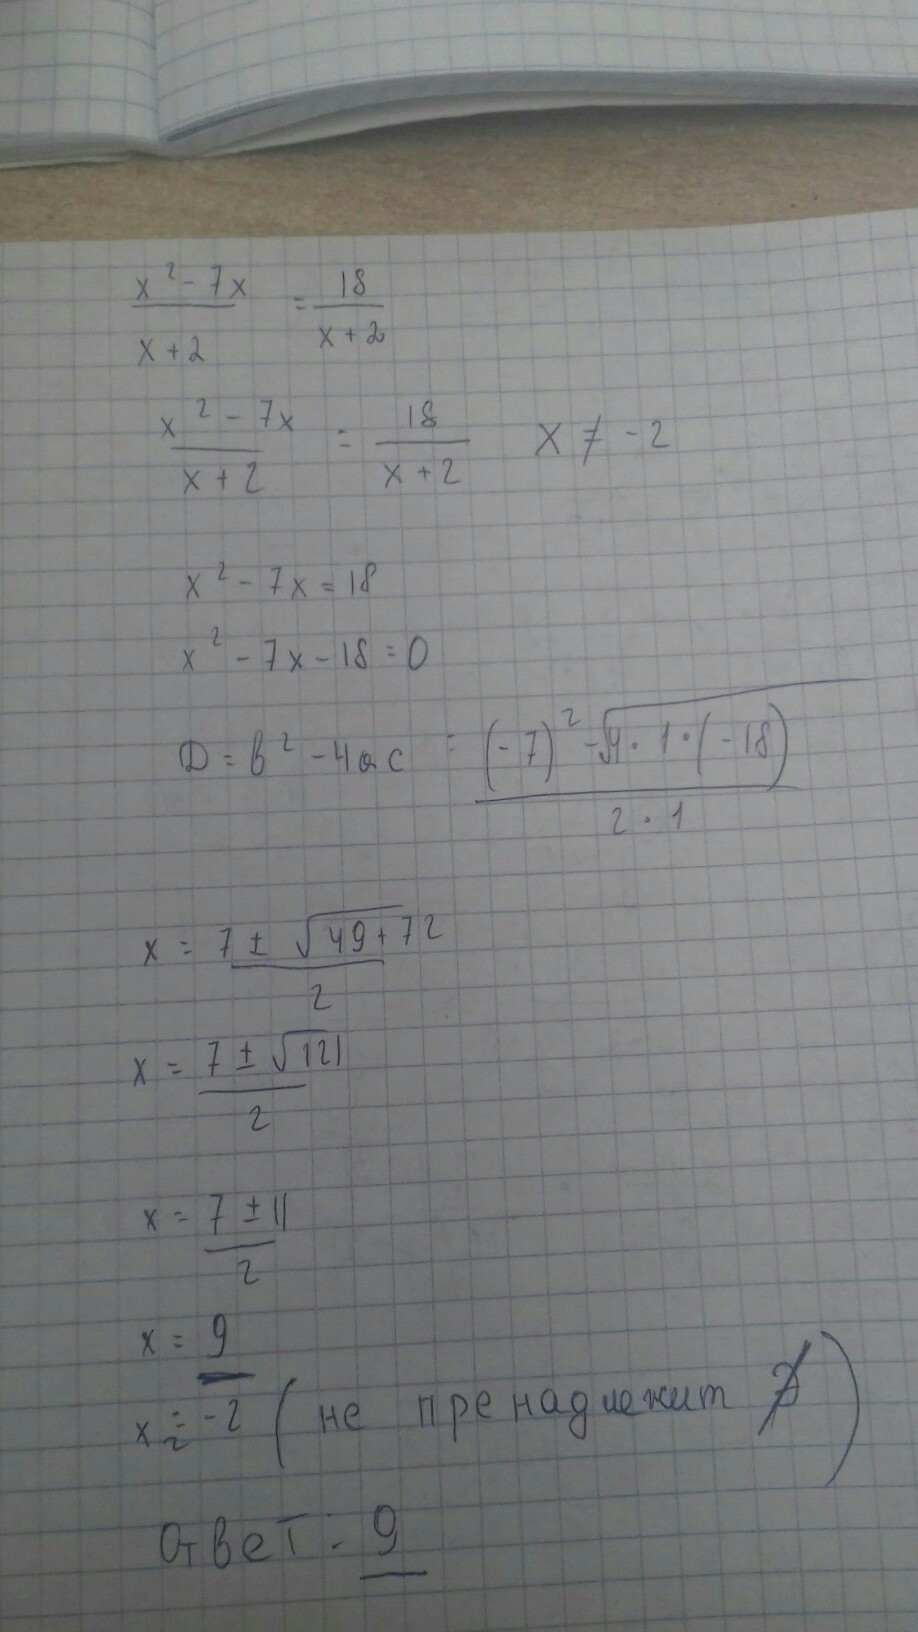 x² - 7x / x + 2 = 18 / x + 2
x² - 7x / x + 2 = 18 / x + 2 x ≠ -2
x² - 7x = 18
x² - 7x - 18 = 0
D = b² - 4ac = (-7)² - √4 · 1 · (-18) / 2 · 1
x = 7 ± √49 + 72 / 2
x = 7 ± √121 / 2
x = 7 ± 11 / 2
x = 9
x₂ = -2 (не пренадлежит )
Ответ: 9